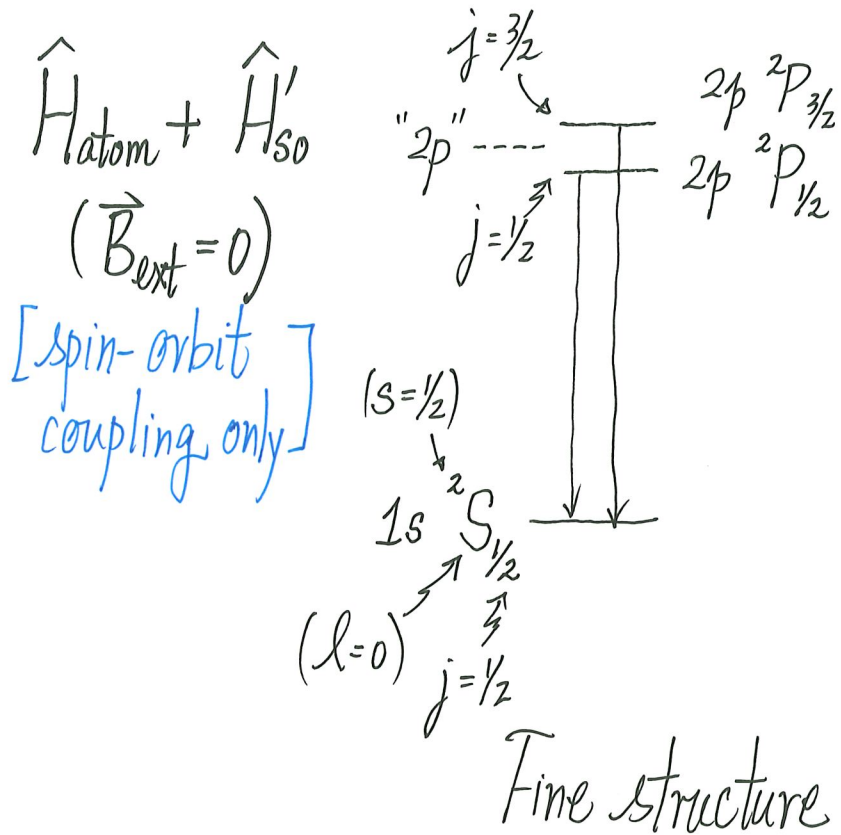 Ĥatom + Ĥ′so
(B⃗ext = 0)
[spin-orbit
coupling only]
j = 3/2
"2p" ----
2p ²P3/2
2p ²P1/2
j = 1/2
(s = 1/2)
1s ²S1/2
(l = 0)
j = 1/2
Fine structure